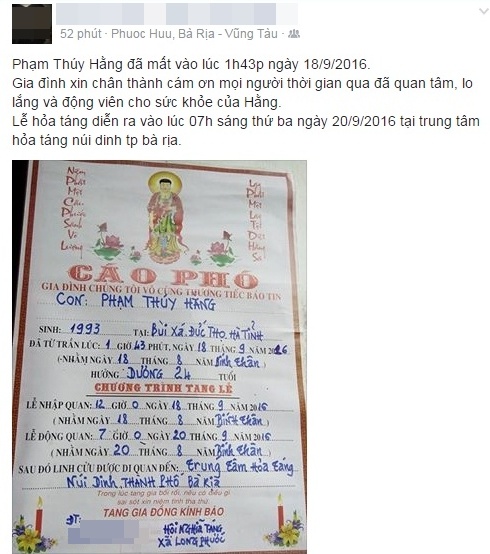 52 phút · Phuoc Huu, Bà Rịa - Vũng Tàu ·
Phạm Thúy Hằng đã mất vào lúc 1h43p ngày 18/9/2016.
Gia đình xin chân thành cám ơn mọi người thời gian qua đã quan tâm, lo
lắng và động viên cho sức khỏe của Hằng.
Lễ hỏa táng diễn ra vào lúc 07h sáng thứ ba ngày 20/9/2016 tại trung tâm
hỏa táng núi dinh tp bà rịa.
Niệm Phật Một Câu Phước Sanh Vô Lượng
Lạy Phật Một Lạy Tội Diệt Hằng Sa
CÁO PHÓ
GIA ĐÌNH CHÚNG TÔI VÔ CÙNG THƯƠNG TIẾC BÁO TIN
CON: PHẠM THÚY HẰNG
SINH: 1993 TẠI: BÙI XÁ. ĐỨC THỌ. HÀ TỈNH
ĐÃ TỪ TRẦN LÚC: 1 GIỜ 43 PHÚT, NGÀY 18 THÁNG 9 NĂM 2016
(NHẰM NGÀY 18 THÁNG 8 NĂM Bính Thân)
HƯỞNG DƯƠNG 24 TUỔI
CHƯƠNG TRÌNH TANG LỄ
LỄ NHẬP QUAN: 12 GIỜ 0 NGÀY 18 THÁNG 9 NĂM 2016
(NHẰM NGÀY 18 THÁNG 8 NĂM Bính Thân)
LỄ ĐỘNG QUAN: 7 GIỜ 0 NGÀY 20 THÁNG 9 NĂM 2016
(NHẰM NGÀY 20 THÁNG 8 NĂM Bính Thân)
SAU ĐÓ LINH CỬU ĐƯỢC DI QUAN ĐẾN: Trung Tâm Hỏa Táng
Núi Dinh, THÀNH PHỐ BÀ RỊA
Trong lúc tang gia bối rối, nếu có điều gì
sai sót xin niệm tình tha thứ.
TANG GIA ĐỒNG KÍNH BÁO
ĐT:
HỘI NGHĨA TANG
XÃ LONG PHƯỚC